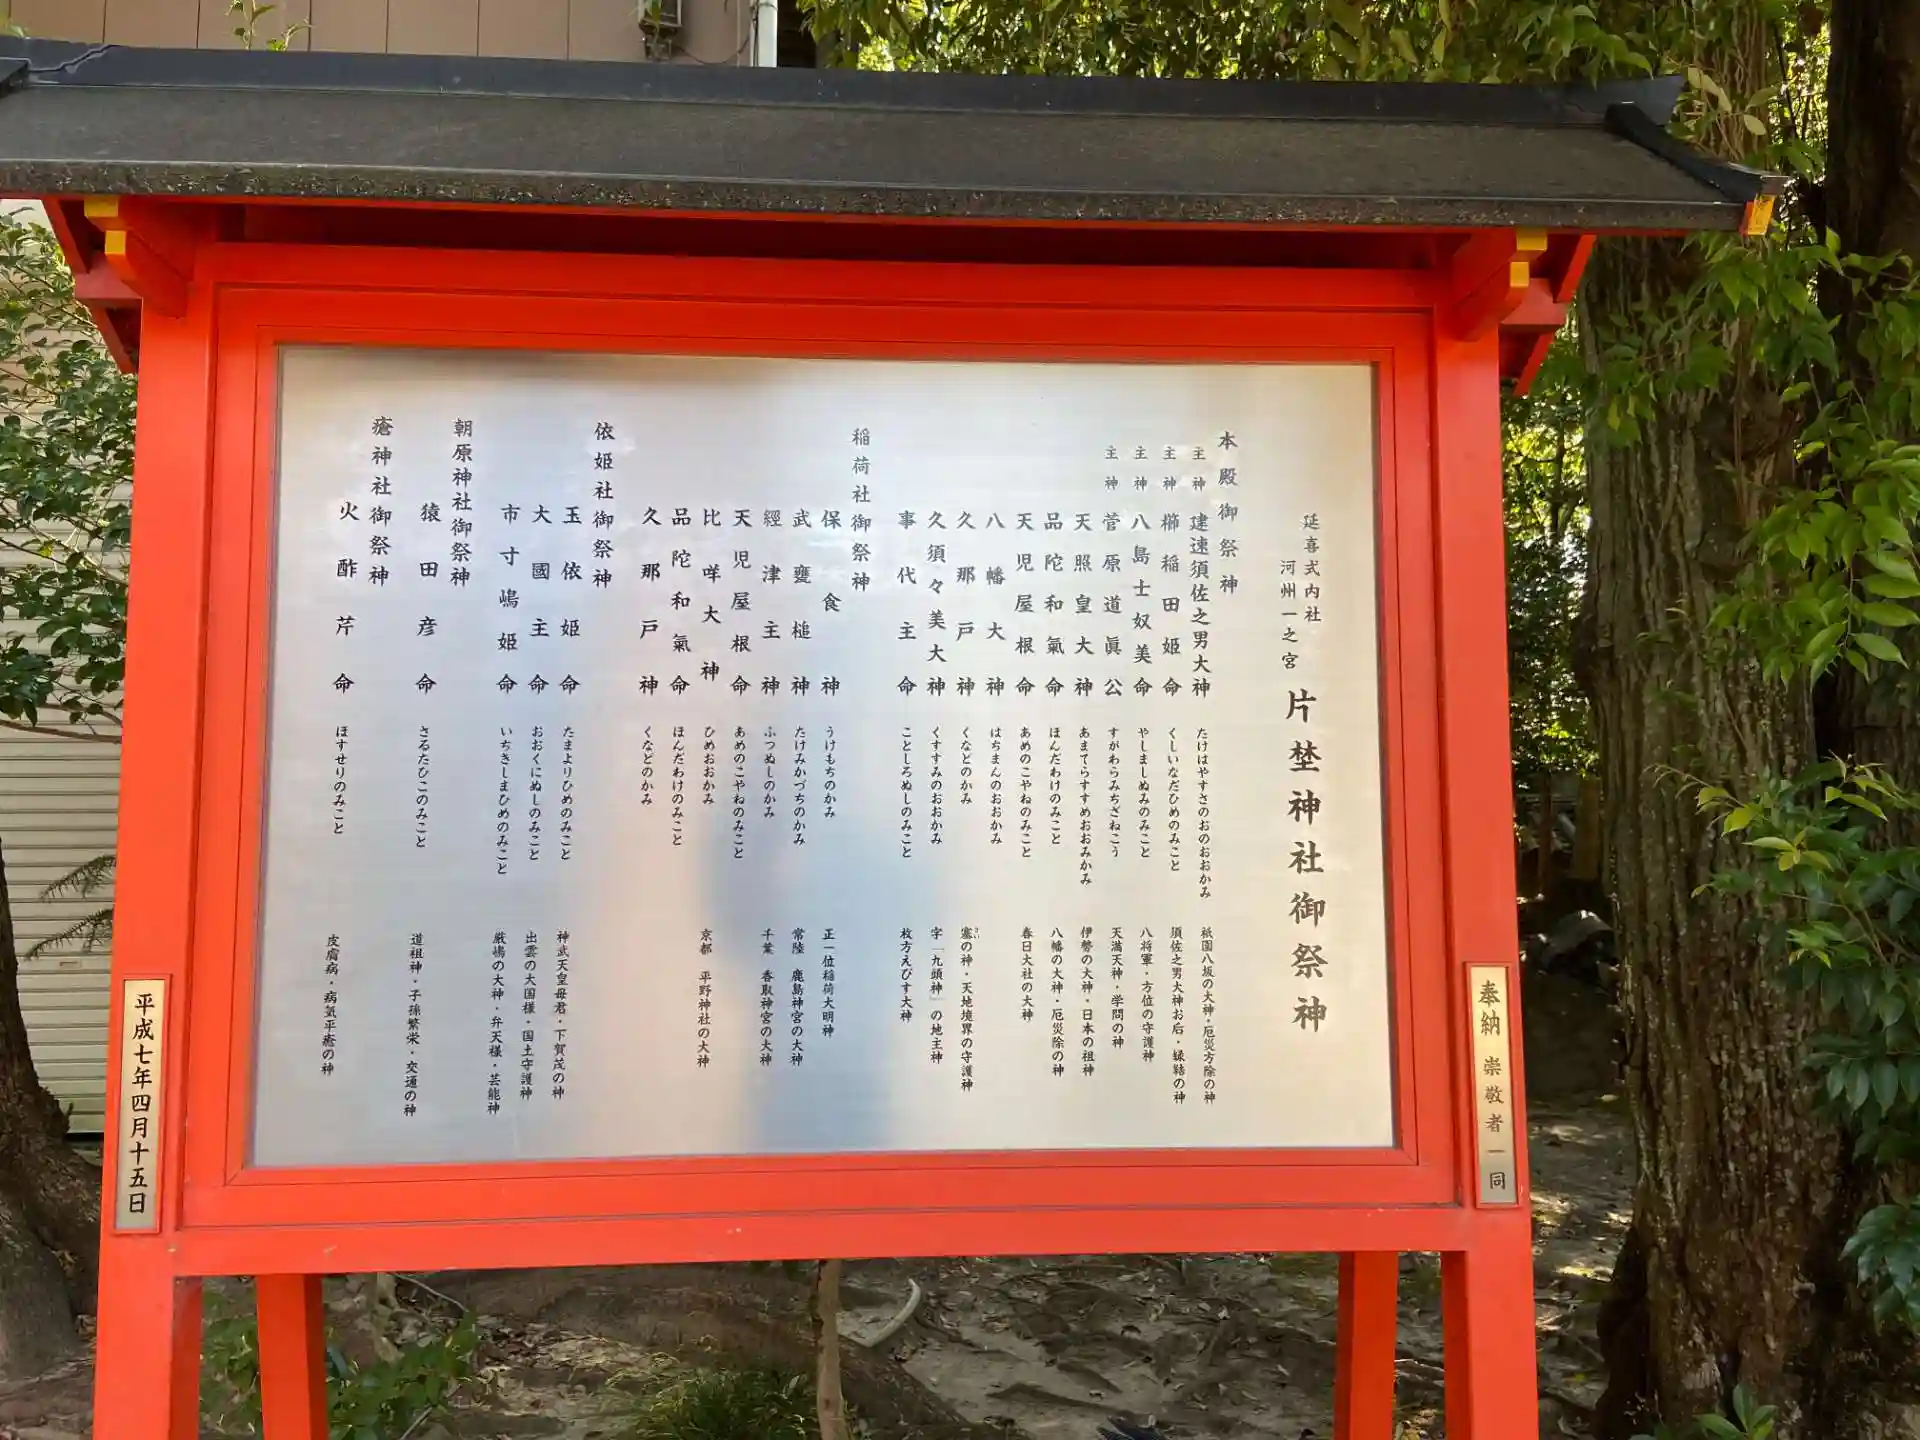 延喜式内社
河州一之宮
片埜神社御祭神
本殿御祭神
主神 建速須佐之男大神 たけはやすさのおのおおかみ 祇園八坂の大神・厄災方除の神
主神 櫛稲田姫命 くしいなだひめのみこと 須佐之男大神お后・縁結の神
主神 八島士奴美命 やしましぬみのみこと 八将軍・方位の守護神
主神 菅原道眞公 すがわらみちざねこう 天満天神・学問の神
天照皇大神 あまてらすすめおおみかみ 伊勢の大神・日本の祖神
品陀和氣命 ほんだわけのみこと 八幡の大神・厄災除の神
天児屋根命 あめのこやねのみこと 春日大社の大神
八幡大神 はちまんのおおかみ
久那戸神 くなどのかみ 塞の神・天地境界の守護神
久須々美大神 くすすみのおおかみ 字「九頭神」の地主神
事代主命 ことしろぬしのみこと 枚方えびす大神
稲荷社御祭神
保食神 うけもちのかみ 正一位稲荷大明神
武甕槌神 たけみかづちのかみ 常陸 鹿島神宮の大神
經津主神 ふつぬしのかみ 千葉 香取神宮の大神
天児屋根命 あめのこやねのみこと
比咩大神 ひめおおかみ 京都 平野神社の大神
品陀和氣命 ほんだわけのみこと
久那戸神 くなどのかみ
依姫社御祭神
玉依姫命 たまよりひめのみこと 神武天皇母君・下賀茂の神
大國主命 おおくにぬしのみこと 出雲の大国様・国土守護神
市寸嶋姫命 いちきしまひめのみこと 厳嶋の大神・弁天様・芸能神
朝原神社御祭神
猿田彦命 さるたひこのみこと 道祖神・子孫繁栄・交通の神
瘡神社御祭神
火酢芹命 ほすせりのみこと 皮膚病・病気平癒の神
奉納 崇敬者一同
平成七年四月十五日